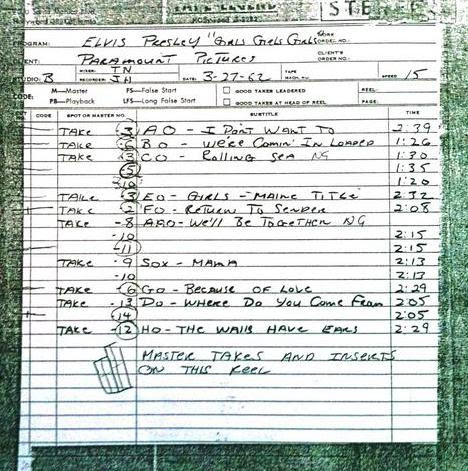 STE
PROGRAM: ELVIS PRESLEY "GIRLS GIRLS GIRLS" WORK ORDER NO.:
CLIENT: PARAMOUNT PICTURES CLIENT'S ORDER NO.:
STUDIO: B MIXER: TN RECORDER: JH DATE: 3-27-62 TAPE MACH. NO.: SPEED 15
CODE: M—Master FS—False Start GOOD TAKES LEADERED REEL:
PB—Playback LFS—Long False Start GOOD TAKES AT HEAD OF REEL PAGE:
CODE SPOT OR MASTER NO. SUBTITLE TIME
TAKE 3 AO - I DONT WANT TO 2:39
TAKE -6 BO - WE'RE COMIN' IN LOADED 1:26
TAKE 3 CO - ROLLING SEA NG 1:30
5 1:35
10 1:20
TAKE 3 EO - GIRLS - MAINE TITLE 2:32
TAKE -2 FO - RETURN TO SENDER 2:08
TAKE -8 AAO - WE'LL BE TOGETHER NG
-10 2:15
-11 2:15
TAKE -9 SOX - MAMA 2:13
-10 2:13
TAKE -6 GO - BECAUSE OF LOVE 2:29
TAKE -13 DO - WHERE DO YOU COME FROM 2:05
14 2:05
TAKE -12 HO - THE WALLS HAVE EARS 2:29
MASTER TAKES AND INSERTS
ON THIS REEL